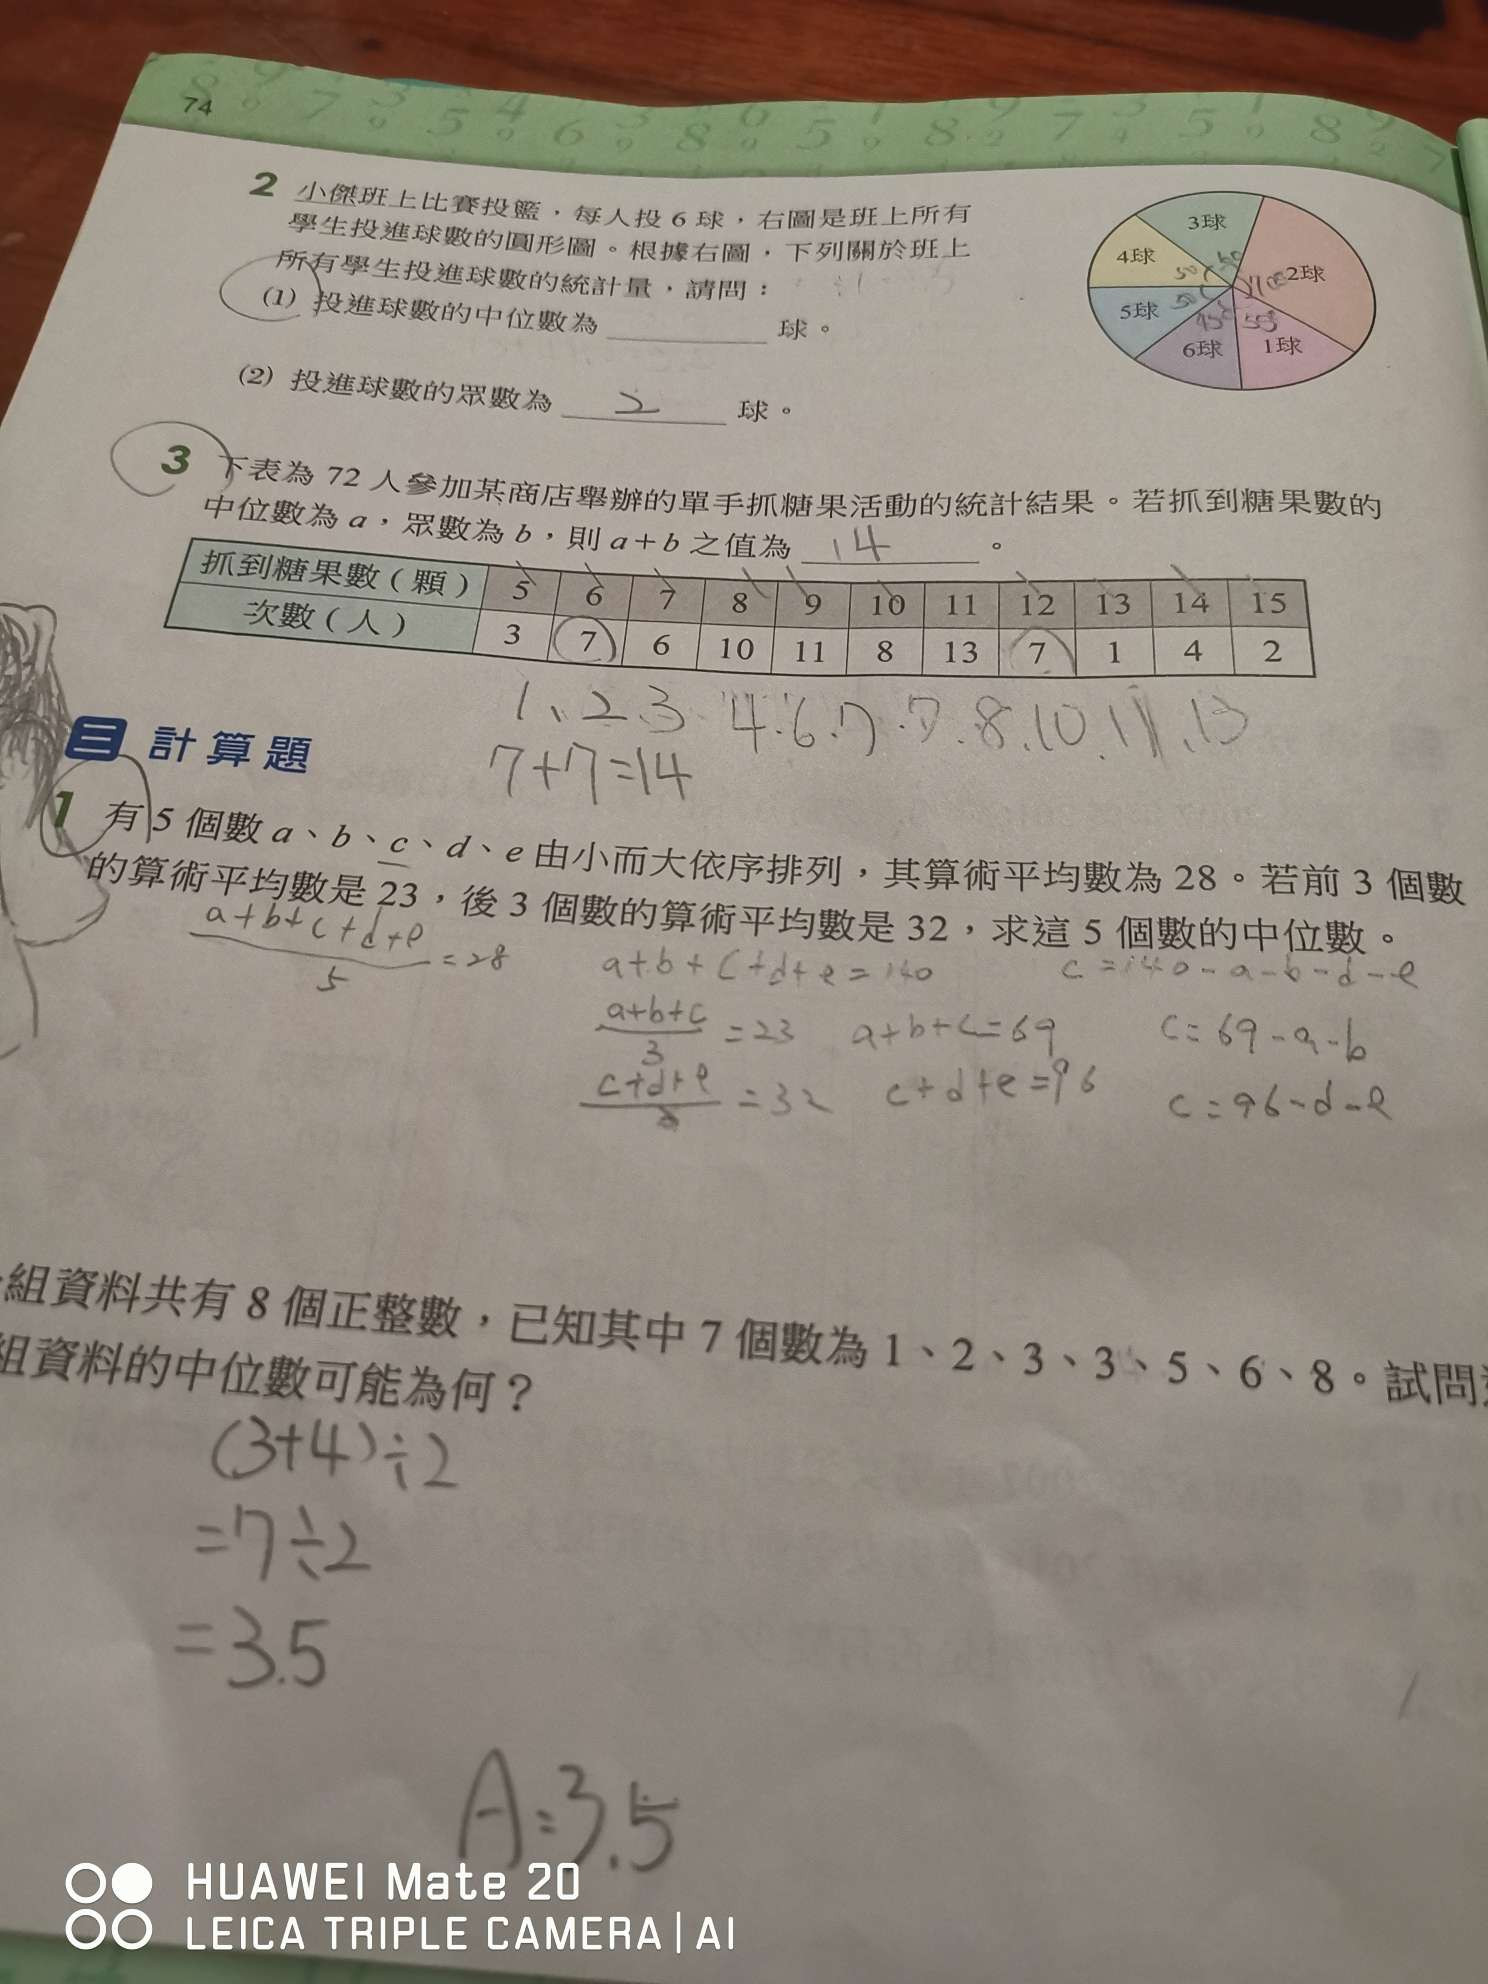 74
2 小傑班上比賽投籃，每人投 6 球，右圖是班上所有
學生投進球數的圓形圖。根據右圖，下列關於班上
所有學生投進球數的統計量，請問：
(1) 投進球數的中位數為 球。
(2) 投進球數的眾數為 2 球。
3球
4球
2球
5球
6球
1球
3 下表為 72 人參加某商店舉辦的單手抓糖果活動的統計結果。若抓到糖果數的
中位數為 a，眾數為 b，則 a+b 之值為 14 。
抓到糖果數（顆） 5 6 7 8 9 10 11 12 13 14 15
次數（人） 3 7 6 10 11 8 13 7 1 4 2
1、2、3、4、6、7、7、8、10、11、13
7+7=14
三 計算題
1 有 5 個數 a、b、c、d、e 由小而大依序排列，其算術平均數為 28。若前 3 個數
的算術平均數是 23，後 3 個數的算術平均數是 32，求這 5 個數的中位數。
a+b+c+d+e
5
=28
a+b+c+d+e=140
c=140-a-b-d-e
a+b+c
3
=23 a+b+c=69 c=69-a-b
c+d+e
3
=32 c+d+e=96 c=96-d-e
組資料共有 8 個正整數，已知其中 7 個數為 1、2、3、3、5、6、8。試問
組資料的中位數可能為何？
(3+4)÷2
=7÷2
=3.5
A=3.5
HUAWEI Mate 20
LEICA TRIPLE CAMERA | AI